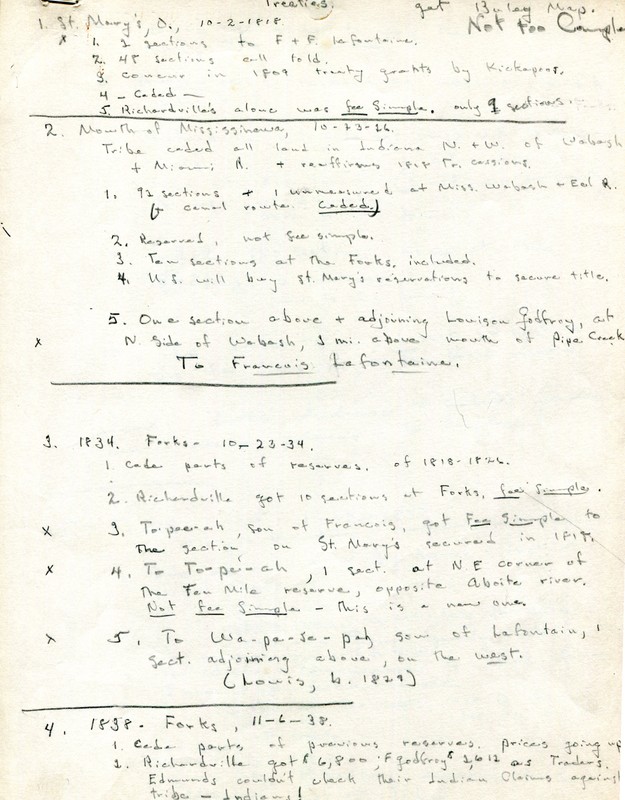 Treaties. get Buley Map.
Not too Comple
1. St. Mary's, O., 10-2-1818.
x 1. 2 sections to F + F. Lafontaine.
2. 48 sections all told.
3. Concur in 1809 treaty grants by Kickapoos.
4 - Ceded -
5. Richardville's alone was fee Simple. only 9 sections.
2. Mouth of Mississinewa, 10-23-26.
Tribe ceded all land in Indiana N. + W. of Wabash
+ Miami R. + reaffirms 1818 Tr. cessions.
1. 92 sections + 1 unmeasured at Miss. Wabash + Eel R.
(+ canal route Ceded.)
2. Reserved, not fee simple.
3. Ten sections at the Forks, included.
4. U.S. will buy St. Mary's reservations to secure title.
5. One section above + adjoining Louison Godfroy, at
x N. Side of Wabash, 1 mi. above mouth of Pipe Creek
To Francois Lafontaine.
3. 1834. Forks - 10-23-34.
1. Cede parts of reserves. of 1818-1826.
2. Richardville got 10 sections at Forks, fee Simple.
x 3. To-pee-ah, son of Francois, got Fee Simple to
the section, on St. Mary's secured in 1818.
x 4. To To-pe-ah, 1 sect. at N.E corner of
the Ten Mile reserve, opposite Aboite river.
Not fee Simple - this is a new one.
x 5. To Wa-pa-se-pah son of Lafontain, 1
Sect. adjoining above, on the west.
(Louis, b. 1829)
4. 1838 - Forks, 11-6-38.
1. Cede parts of previous reserves. prices going up
2. Richardville got $6,800; F Godfroy $2,612 as Traders.
Edmunds couldn't check their Indian Claims against
tribe - Indians!